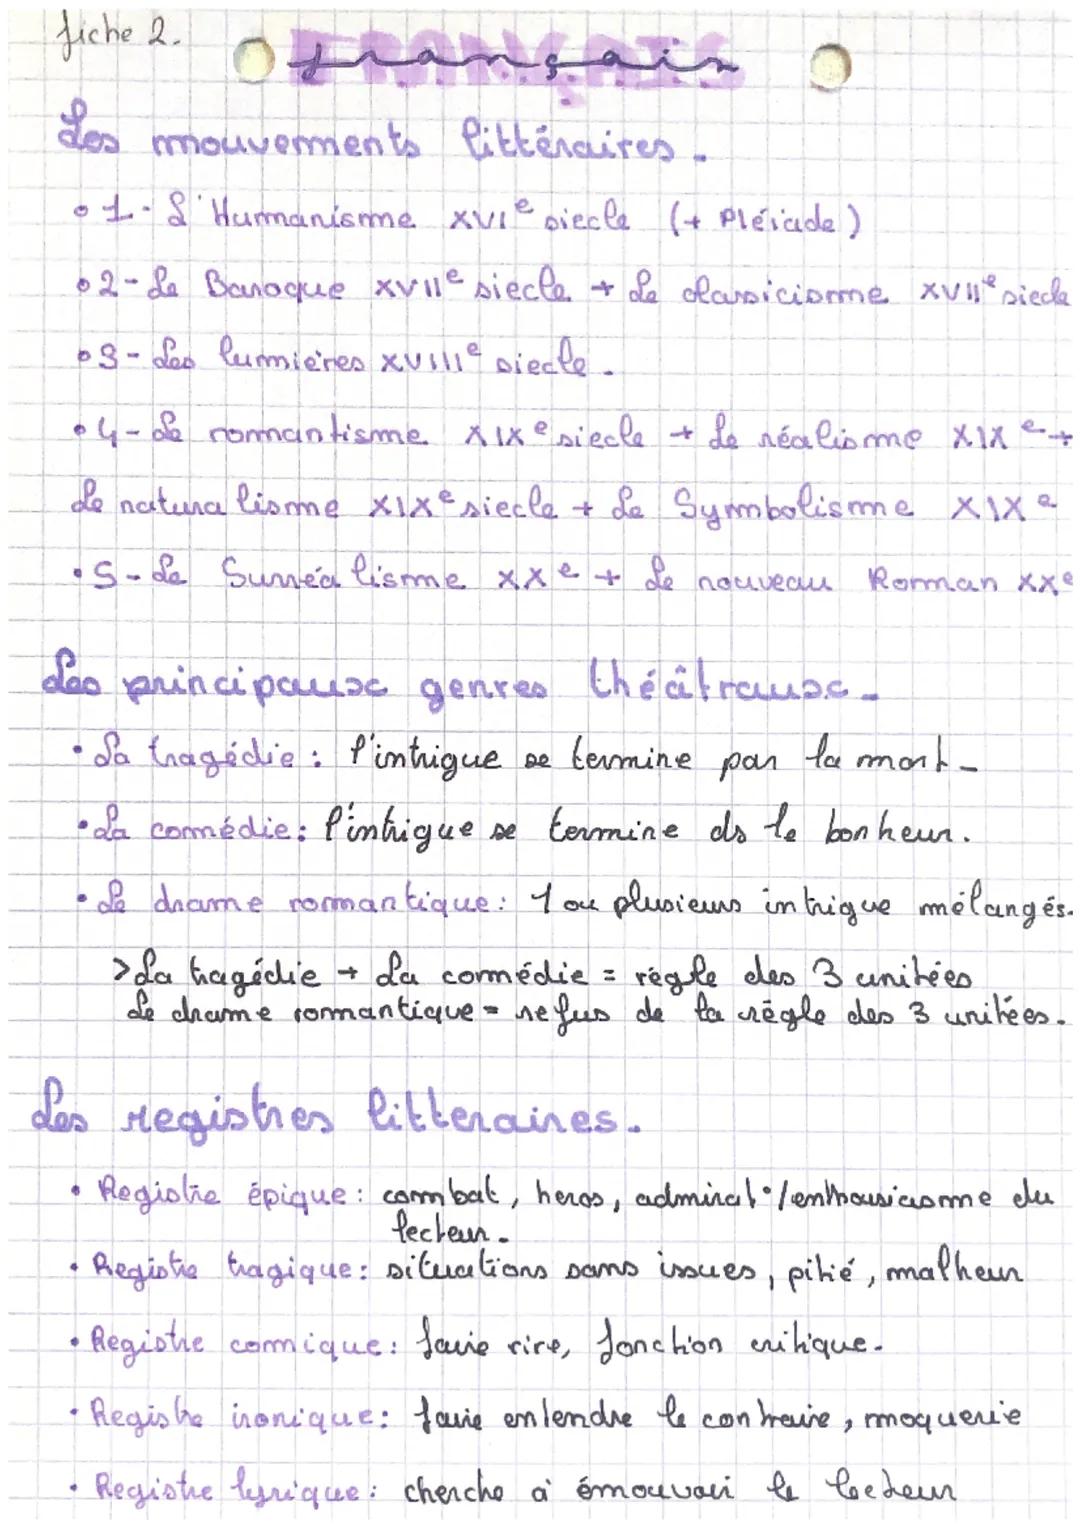 fiche 2.
FRANÇAIS
français
Les mouvements littéraires.
•1- L'Humanisme XVIe siecle (+ Pléiade)
•2- Le Baroque XVIIe siecle + Le classicisme XVIIe siecle
•3- Les lumières XVIIIe siecle.
•4- Le romantisme XIXe siecle + Le réalisme XIXe +
Le naturalisme XIXe siecle + Le Symbolisme XIXe
•5- Le Surréalisme XXe + Le nouveau Roman XXe
Les principaux genres théâtraux.
• La tragédie : l'intrigue se termine par la mort.
• La comédie : l'intrigue se termine ds le bonheur.
• Le drame romantique : 1 ou plusieurs intrigue mélangés.
> La tragédie + La comédie = règle des 3 unitées
Le drame romantique = refus de la règle des 3 unitées.
Les registres litteraires.
• Registre épique : combat, heros, admirat°/enthousiasme du
lecteur.
• Registre tragique : situations sans issues, pitié, malheur
• Registre comique : faire rire, fonction critique.
• Registre ironique : faire entendre le contraire, moquerie
• Registre lyrique : cherche à émouvoir le lecteur